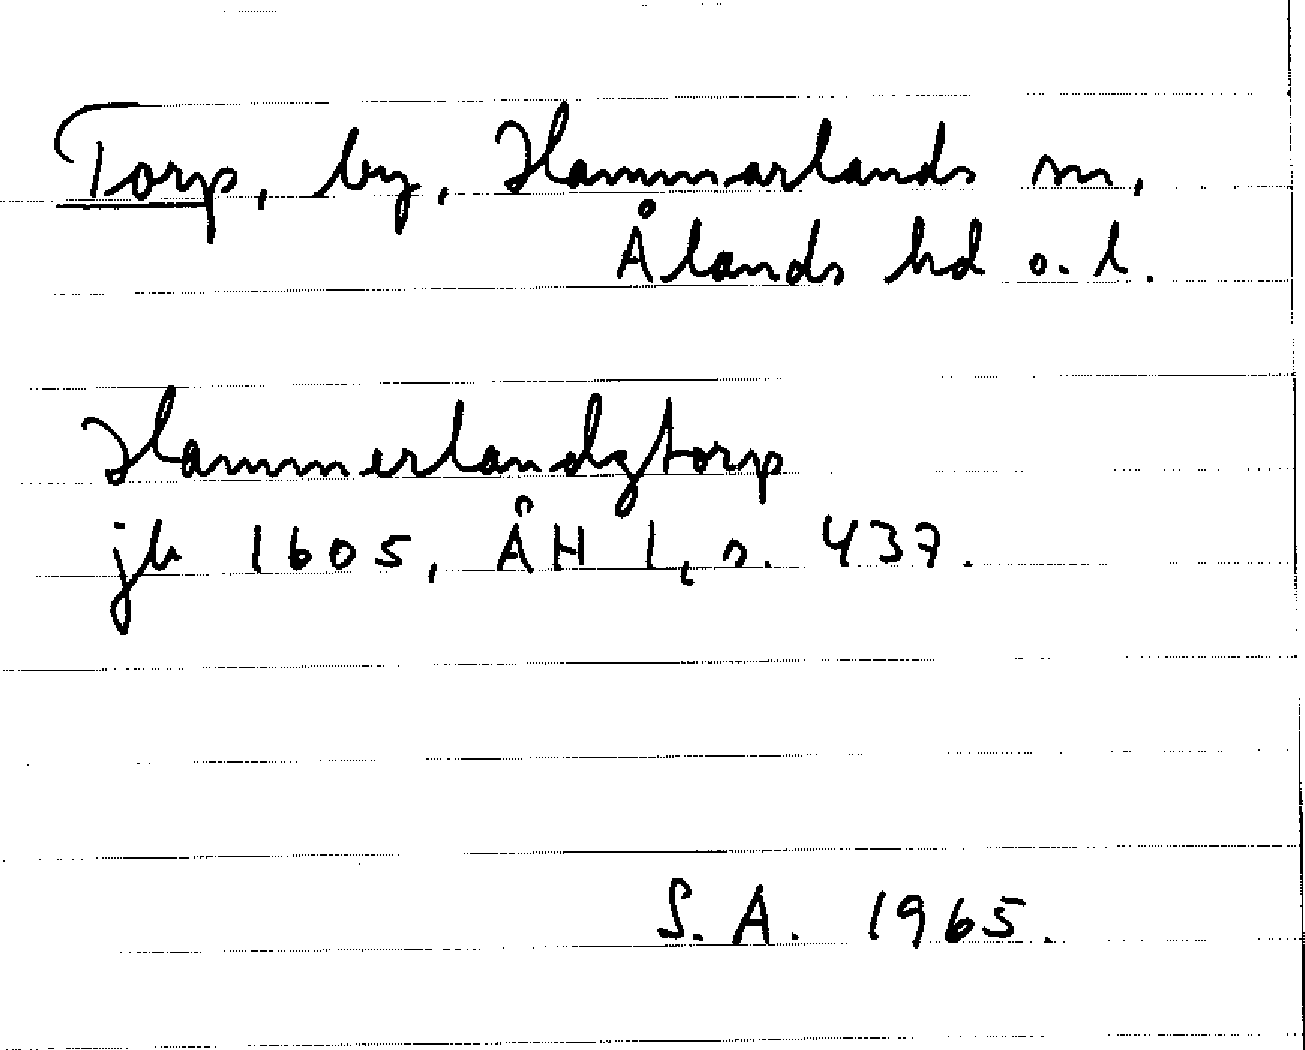 Torp, by, Hammarlands sn,
Ålands hd o. l.
Hammerlandztorp
jb 1605, ÅH 1, s. 437.
S. A. 1965.